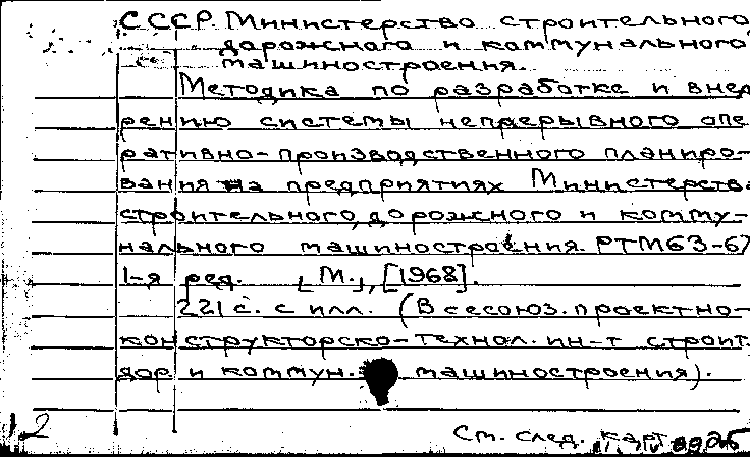 СССР. Министерство строительного,
дорожного и коммунального
машиностроения.
Методика по разработке и внед
рению системы непрерывного опе
ративно-производственного планиро-
вания на предприятиях Министерства
строительного, дорожного и комму-
нального машиностроения. РТМ63-67
1-я ред. [М.], [1968].
221 с. с илл. (Всесоюз. проектно-
конструкторско-технол. ин-т строит.
дор и коммун. машиностроения).
12
См. след. карт